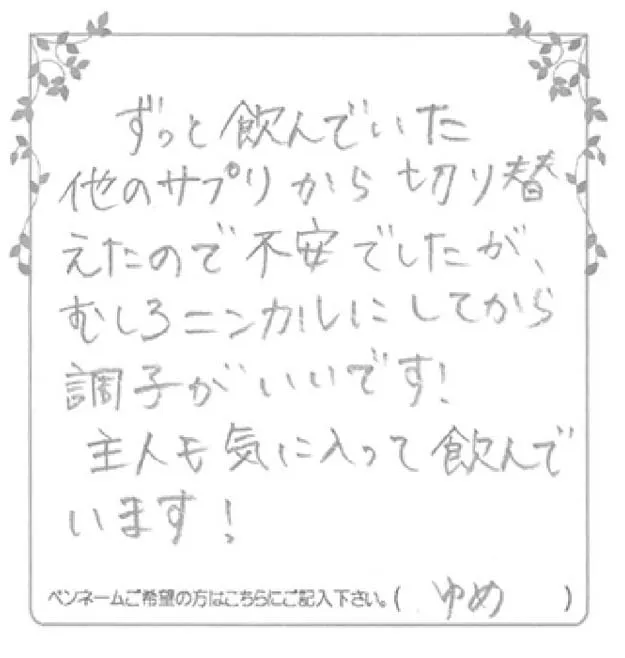 ずっと飲んでいた
他のサプリから切り替
えたので不安でしたが、
むしろニンカルにしてから
調子がいいです!
主人も気に入って飲んで
います!
ペンネームご希望の方はこちらにご記入下さい。( ゆめ )